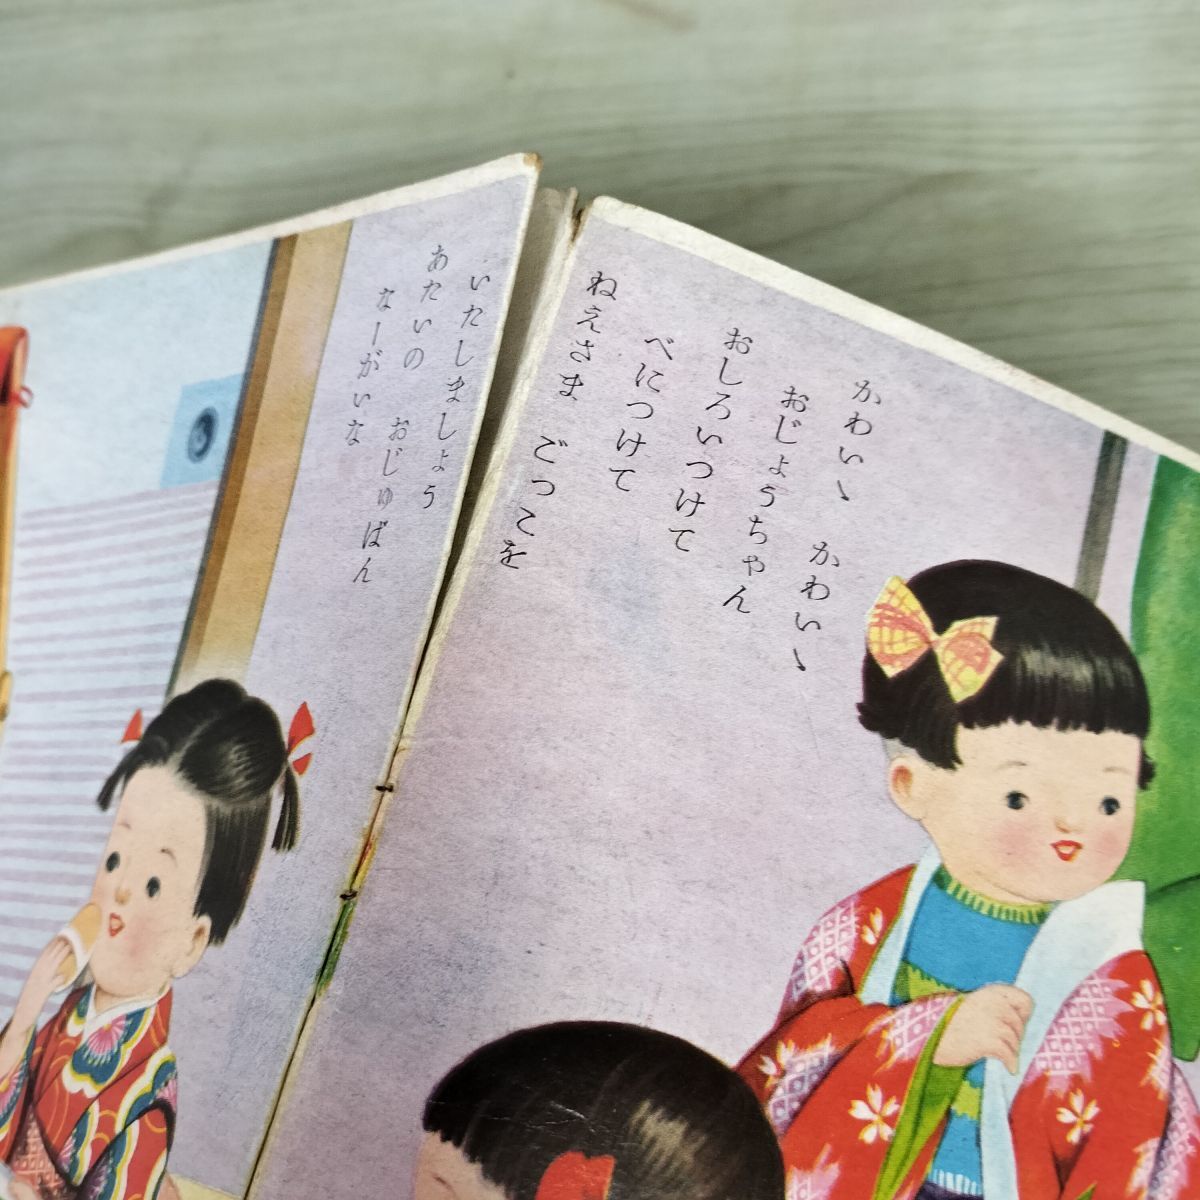 かわいゝ かわいゝ
おじょうちゃん
おしろいつけて
べにつけて
ねえさま ごっこを
いたしましょう
あたいの おじゅばん
なーがいな